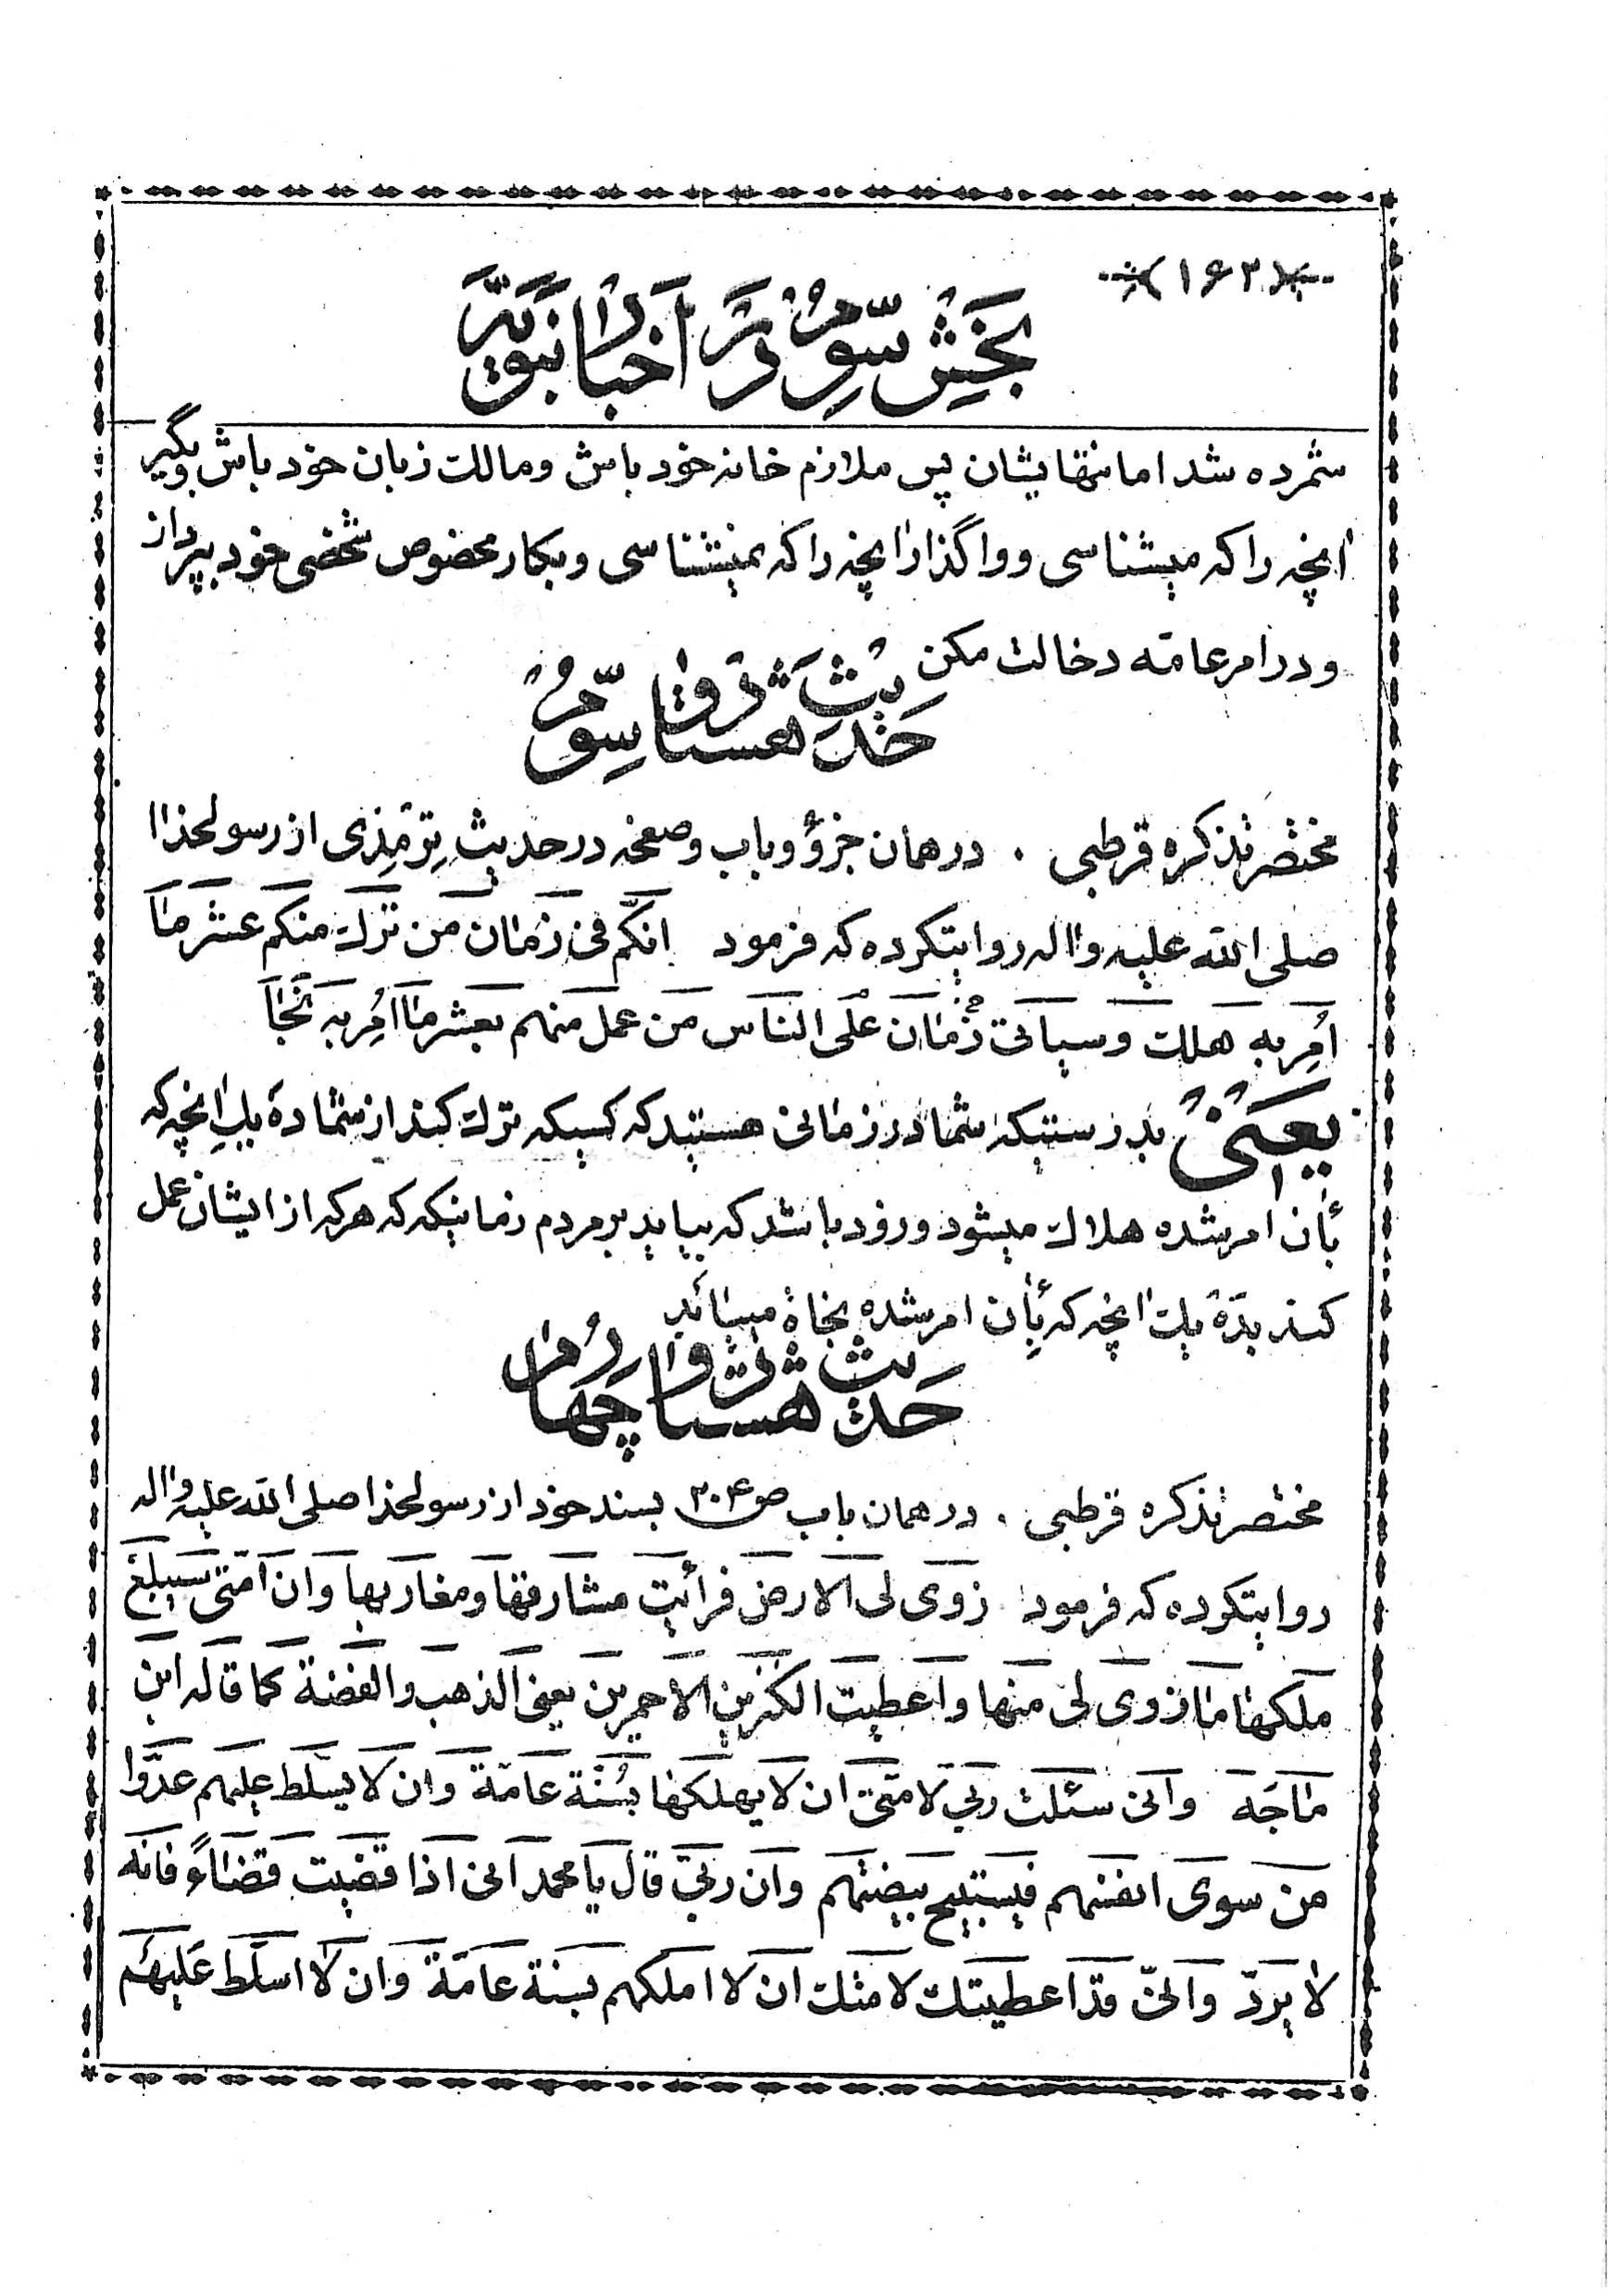 ﴿۱۶۲﴾
بخش سوم در اخبار نبویه
شمرده شد اما تنهایشان پس ملازم خانه خود باش و مالک زبان خود باش و بگیر
آنچه را که میشناسی و واگذار آنچه را که نمیشناسی و بکار مخصوص شخصی خود بپرداز
و در امر عامّه دخالت مکن
حدیث هشتاد و سوم
مختصر تذکره قرطبی . در همان جزؤ و باب و صفحه در حدیث تِرمِذی از رسولخدا
صلی الله علیه و اله روایتکرده که فرمود انکم فی زمان من ترک منکم عشر ما
اُمِر به هلک و سیاتی زمان علی الناس من عمل منهم بعشر ما اُمِر به نجا
یعنی بدرستیکه شما در زمانی هستید که کسیکه ترک کند از شما ده یکِ آنچه که
بآن امر شده هلاک میشود و زود باشد که بیاید بر مردم زمانیکه که هر که از ایشان عمل
کند بده یک آنچه که بِآن امر شده نجاة مییابد
حدیث هشتاد و چهارم
مختصر تذکره قرطبی . در همان باب ص۲۰۴ بسند خود از رسولخدا صلی الله علیه و اله
روایتکرده که فرمود زوی لی الارض فرأیت مشارقها و مغاربها و ان امتی سیبلغ
ملکها ما زوی لی منها و اعطیت الکنزین الاحمرین یعنی الذهب و الفضة کما قاله ابن
ماجَه و انی سئلت ربی لامتی ان لا یهلکها بسُنَّة عامّة و ان لا یسلّط علیهم عدوّا
من سوی انفسهم فیستبیح بیضتهم و ان ربی قال یا محمد انی اذا قضیت قضاءً فانه
لا یردّ و انی قد اعطیتک لامتک ان لا املکهم بسنة عامّة و ان لا اسلّط علیهم